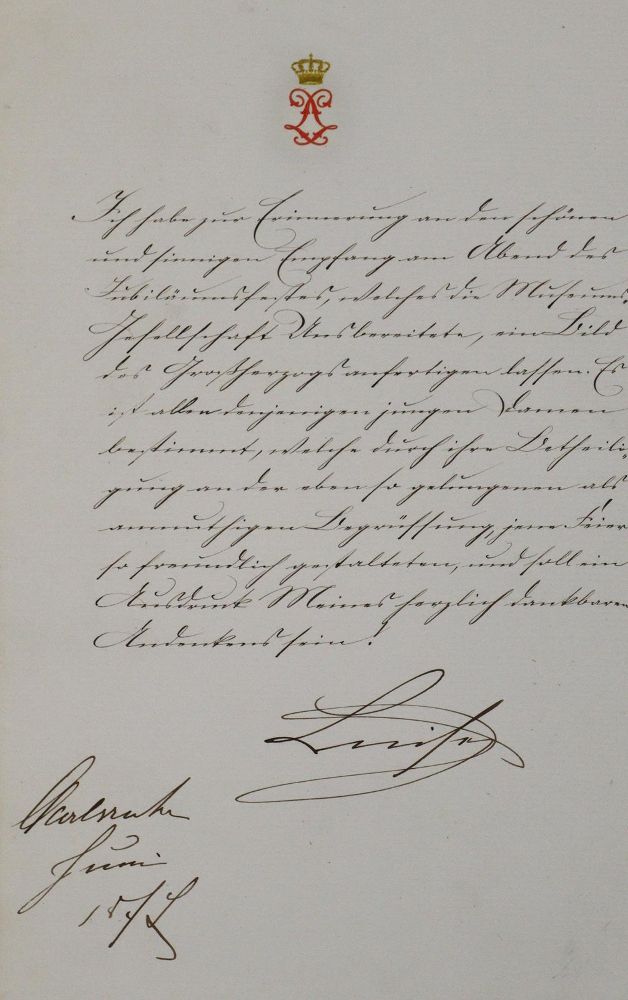 Ich habe zur Erinnerung an den schönen
und sinnigen Empfang am Abend des
Jubiläumsfestes, welches die Museums,
Gesellschaft Uns bereitete, ein Bild
des Großherzogs anfertigen lassen. Es
ist allen denjenigen jungen Damen
bestimmt, welche durch ihre Betheili,
gung an der eben so gelungenen als
anmuthigen Begrüssung, jene Feier
so freundlich gestalteten, und soll ein
Ausdruck Meines herzlich dankbaren
Andenkens sein!
Luise
Carlsruhe
Juni
1877